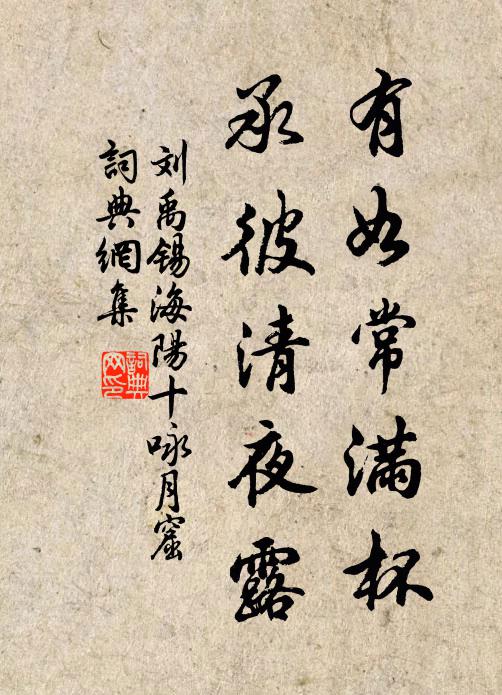 有如常满杯
承彼清夜露
刘禹锡海陽十咏月窟
詞典網集
詞典网印